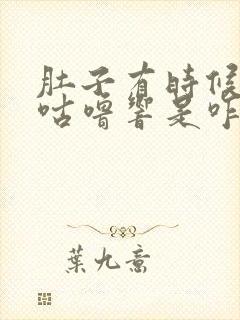 肚子有時候
咕嚕響是咋
葉九意